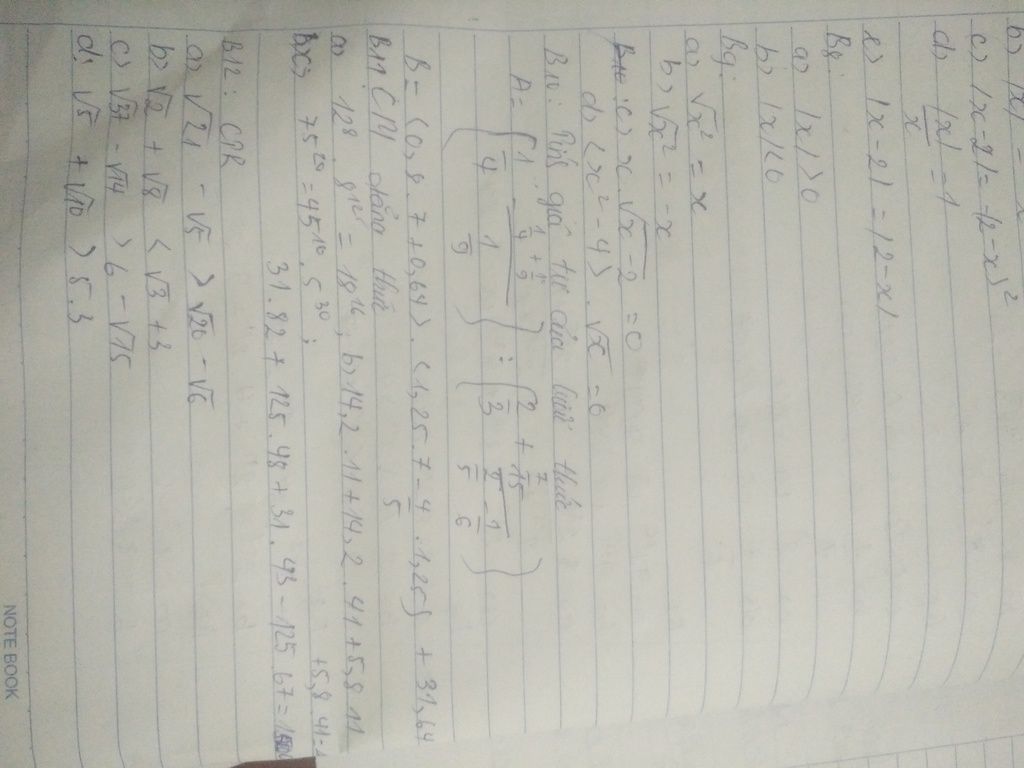 b> |x| =
c> |x-2| = |2-x|²
d> |x|/x = 1
e> |x-2| = |2-x|
B8:
a> |x| > 0
b> |x| < 0
B9:
a> √x² = x
b> √x² = -x
c> x.√x-2 = 0
d> <x²-4>.√x = 0
B10: giá trị của biểu thức
A =
B = <0,8.7+0,64>.<1,25.7-4/5.1,25> + 31,64
B11: CM đẳng thức
a> 12⁸.9¹² = 18¹⁶; b> 14,2.11+14,2.41+5,8.11
+5,8.41=
c> 75²⁰ = 45¹⁰.5³⁰;
31.82+125.48+31.43-125.67=
B12: CMR
a> √21 - √5 > √20 - √6
b> √2 + √8 < √3 + 3
c> √37 - √14 > 6 - √15
d: √5 + √10 > 5.3
NOTE BOOK